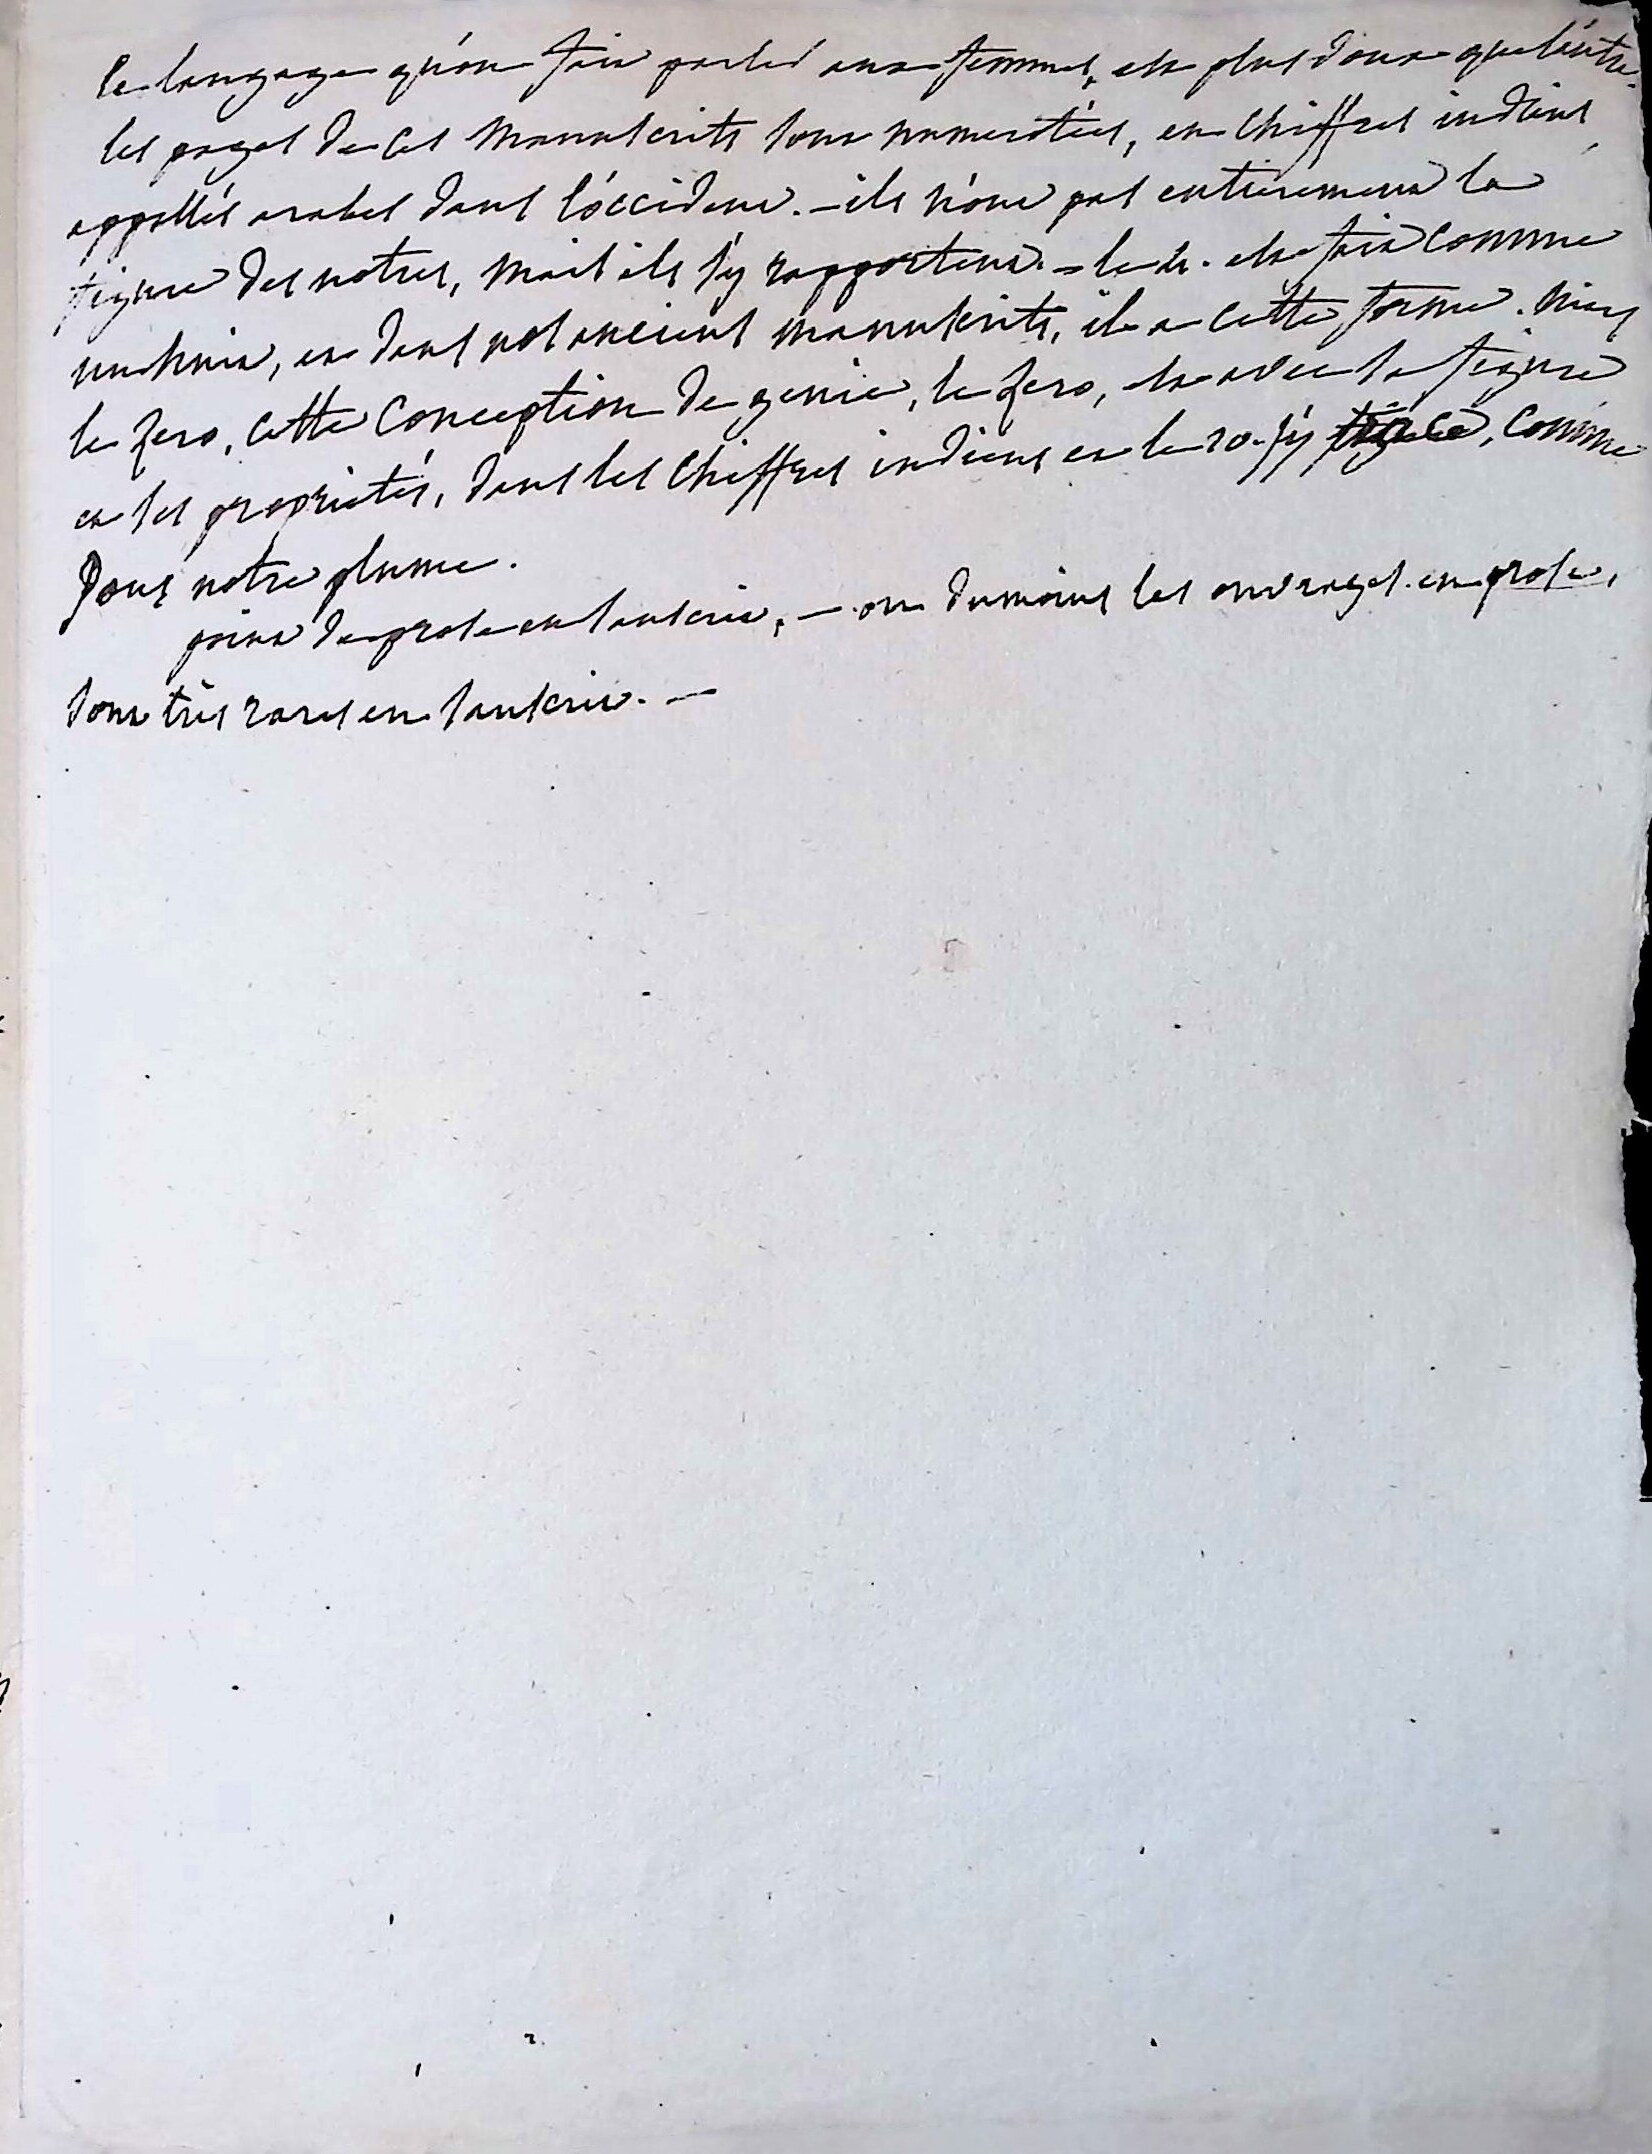 le langage qu'on fait parler aux femmes, est plus doux que l'autre.
les pages de ces manuscrits sont numerotées, en chiffres indiens,
appellés arabes dans l'occident. — ils n'ont pas entierement la
figure des notres, mais ils s'y rapportent. — le 4. est fait comme
un huit, et dans nos anciens manuscrits, il a cette forme. mais
le zero, cette conception de genie, le zero, est avec sa figure
et ses proprietés, dans les chiffres indiens et le 10. s'y trace, comme
sous notre plume.
point de prose en sanscrit, — ou du moins les ouvrages en prose,
sont très rares en sanscrit. —